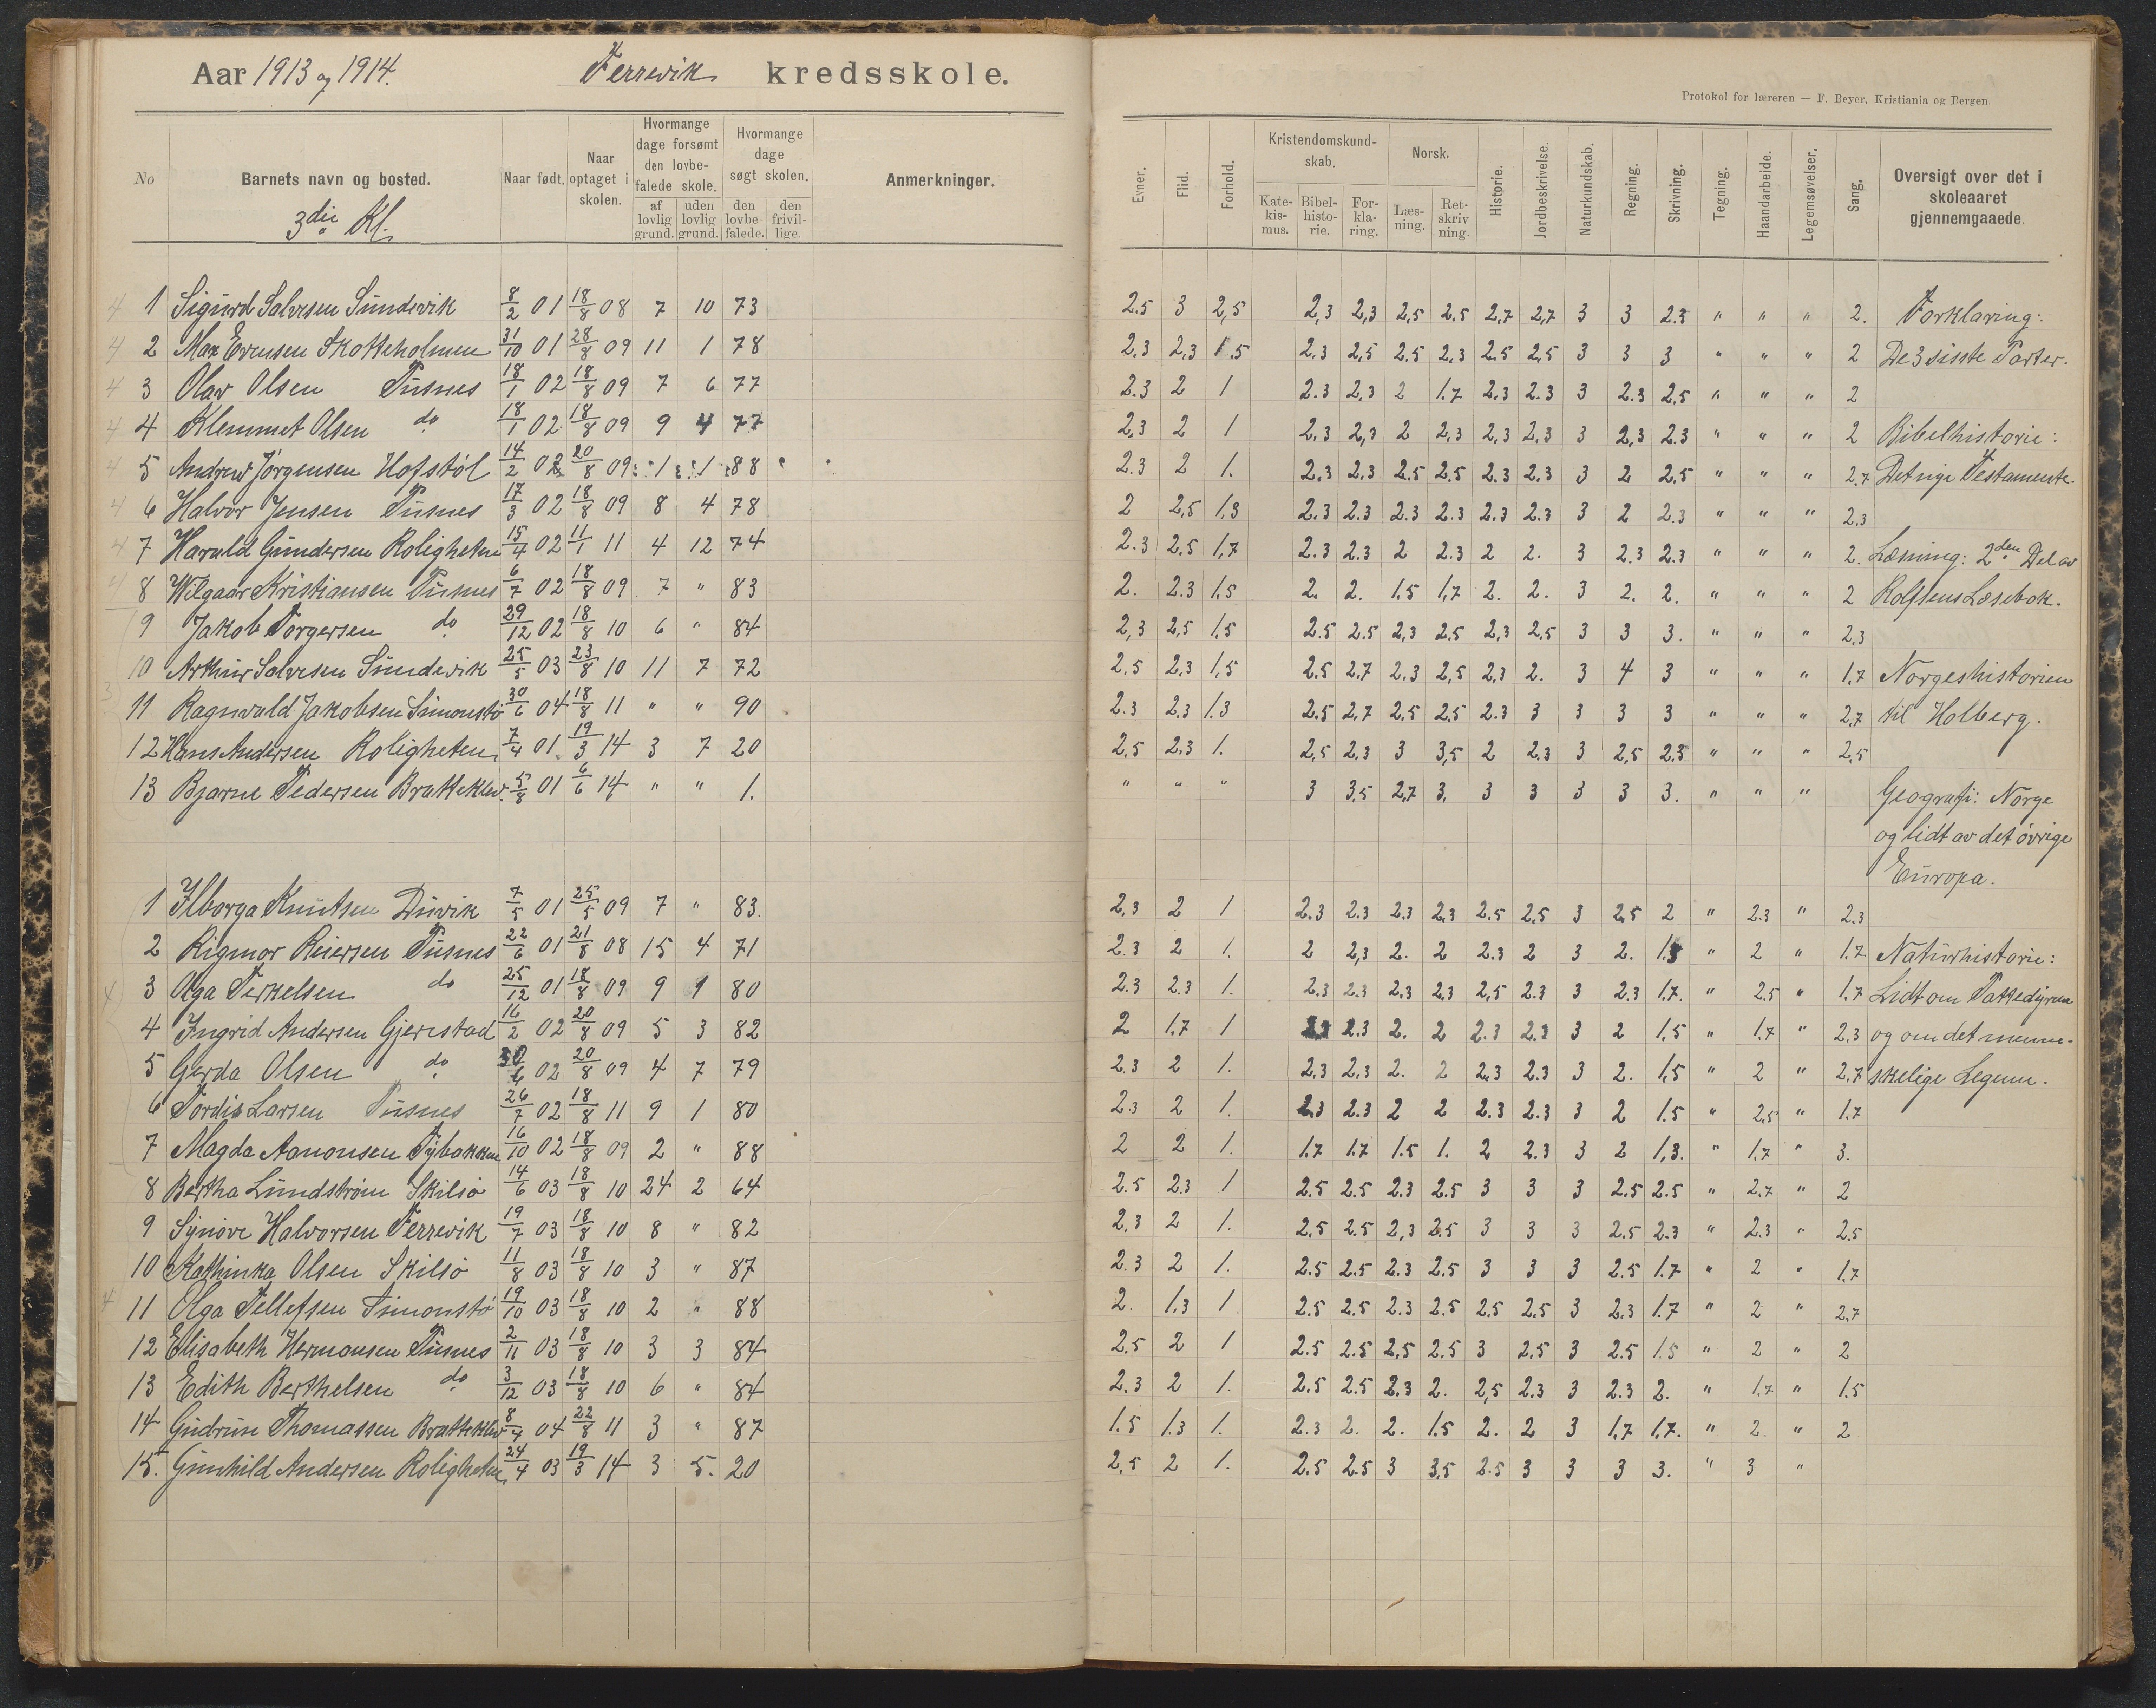 Aar 1913 og 1914. Færrevik kredsskole.
Protokol for læreren — F. Beyer, Kristiania og Bergen.
No Barnets navn og bosted. Naar født. Naar optaget i skolen. Hvormange dage forsømt den lovbefalede skole. af lovlig grund. uden lovlig grund. Hvormange dage søgt skolen. den lovbefalede. den frivillige. Anmerkninger.
Evner. Flid. Forhold. Kristendomskundskab. Katekismus. Bibelhistorie. Forklaring. Norsk. Læsning. Retskrivning. Historie. Jordbeskrivelse. Naturkundskab. Regning. Skrivning. Tegning. Haandarbeide. Legemsøvelser. Sang. Oversigt over det i skoleaaret gjennemgaaede.
3die Kl.
1 Sigurd Salvesen Sundevik 8/2 01 18/8 08 7 10 73 2.5 3 2,5 2,3 2,3 2,5 2.5 2,7 2,7 3 3 2.3 " " " 2. Forklaring:
2 Max Evensen Skotteholmen 31/10 01 28/8 09 11 1 78 2,3 2,3 1,5 2.3 2,5 2.5 2,3 2.5 2,5 3 3 3 " " " 2 De 3 sisste Parter.
3 Olav Olsen Pusnes 18/1 02 18/8 09 7 6 77 2.3 2 1 2.3 2,3 2 1.7 2.3 2.3 3 2.3 2,5 " " " 2
4 Klemmet Olsen do 18/1 02 18/8 09 9 4 77 2,3 2 1 2,3 2,3 2 2,3 2,3 2,3 3 2,3 2.3 " " " 2 Bibelhistorie:
5 Andrew Jørgensen Hofstøl 14/2 02 20/8 09 1 1 88 2.3 2 1. 2,3 2,3 2.5 2.5 2.3 2,3 3 2 2,5 " " " 2,7 Det nye Testamente.
6 Halvor Jensen Pusnes 17/3 02 18/8 09 8 4 78 2 2,5 1,3 2.3 2.3 2.3 2.3 2.3 2.3 3 2 2.3 " " " 2,3
7 Harald Gundersen Roligheten 15/4 02 11/1 11 4 12 74 2.3 2,5 1,7 2.3 2.3 2 2.3 2 2. 3 2.3 2.3 " " " 2. Læsning: 2den Del av
8 Wilgaar Kristiansen Pusnes 6/7 02 18/8 09 7 " 83 2. 2.3 1,5 2. 2. 1.5 1,7 2. 2. 3 2. 2. " " " 2 Rolfsens Læsebok.
9 Jakob Torgersen do 29/12 02 18/8 10 6 " 84 2,3 2,5 1,5 2.5 2.5 2,3 2,5 2,3 2,5 3 3 3. " " " 2,3
10 Arthur Salvesen Sundevik 25/5 03 23/8 10 11 7 72 2,5 2,3 1,5 2,5 2,7 2,3 2,5 2,3 2. 3 4 3 " " " 1,7 Norgeshistorien
11 Ragnvald Jakobsen Simonstø 30/6 04 18/8 11 " " 90 2.3 2,3 1.3 2.5 2,7 2,5 2,5 2.3 3 3 3 3 " " " 2,7 til Holberg.
12 Hans Andersen Roligheten 7/4 01 19/3 14 3 7 20 2,5 2.3 1. 2,5 2,3 3 3,5 2 2.3 3 2,5 2.3 " " " 2,5
13 Bjarne Pedersen Bratteklev. 5/8 01 6/6 14 " " 1. " " " 3 3,5 2,7 3, 3 3 3 3 3. " " " Geografi: Norge
og lidt av det øvrige
Europa.
1 Ilborga Knutsen Duvik 7/5 01 25/5 09 7 " 83. 2,3 2 1 2.3 2.3 2.3 2,3 2.5 2,5 3 2,5 2 " 2.3 " 2.3
2 Rigmor Reiersen Pusnes 22/6 01 21/8 08 15 4 71 2.3 2 1. 2 2,3 2. 2 2.3 2 3 2. 1.3 " 2 " 1.7 Naturhistorie:
3 Olga Terkelsen do 25/12 01 18/8 09 9 1 80 2.3 2.3 1. 2.3 2.3 2,3 2,3 2,5 2.3 3 2.3 1,7. " 2.5 " 1,7 Lidt om Pattedyrene
4 Ingrid Andersen Gjerestad 16/2 02 20/8 09 5 3 82 2 1.7 1 2.3 2.3 2. 2 2.3 2.3 3 2 1,5 " 1,7 " 2.3 og om det menne-
5 Gerda Olsen do 30/6 02 20/8 09 4 7 79 2.3 2 1. 2,3 2,3 2. 2 2,3 2.3 3 2. 1,5 " 2 " 2,7 skelige Legeme.
6 Tordis Larsen Pusnes 26/7 02 18/8 11 9 1 80 2.3 2 1. 2.3 2.3 2 2 2.3 2.3 3 2 1.5 " 2,5 " 1.7
7 Magda Aanonsen Tybakken 16/10 02 18/8 09 2 " 88 2 2 1. 1.7 1.7 1.5 1. 2 2.3 3 2 1,3. " 1,7 " 3.
8 Bertha Lundstrøm Skilsø 14/6 03 18/8 10 24 2 64 2.5 2.3 1 2.5 2.5 2.3 2.5 3 3 3 2.5 2.5 " 2,7 " 2
9 Synøve Halvorsen Færrevik 19/7 03 18/8 10 8 " 82 2,3 2 1. 2,5 2.5 2,3 2.5 3 3 3 2.5 2.3 " 2.3 " 2,5
10 Kathinka Olsen Skilsø 11/8 03 18/8 10 3 " 87 2.3 2 1. 2.5 2.5 2.3 2.5 3 3 3 2.5 1.7 " 2 " 1,7
11 Olga Tellefsen Simonstø 19/10 03 18/8 10 2 " 88 2. 1,3 1 2.5 2.5 2.3 2.5 2,5 2,5 3 2,3 1.7 " 2 " 2,7
12 Elisabeth Hermansen Pusnes 2/11 03 18/8 10 3 3 84 2.5 2 1 2.5 2.5 2,5 2.5 3 2,5 3 2.5 1.5 " 2 " 2
13 Edith Berthelsen do 3/12 03 18/8 10 6 " 84 2,3 2 1. 2.5 2.5 2.3 2. 2,5 2,3 3 2.3 2. " 1,7 " 1.5
14 Gudrun Thomassen Bratteklev 8/4 04 22/8 11 3 " 87 1.5 1.3 1. 2.3 2. 2. 1.5 2. 2 3 1,7 1.7. " 2. " 2
15. Gunhild Andersen Roligheten 24/4 03 19/3 14 3 5. 20 2,5 2 1. 2.5 2.5 3 3,5 2.5 3 3 3 3. " 3 "